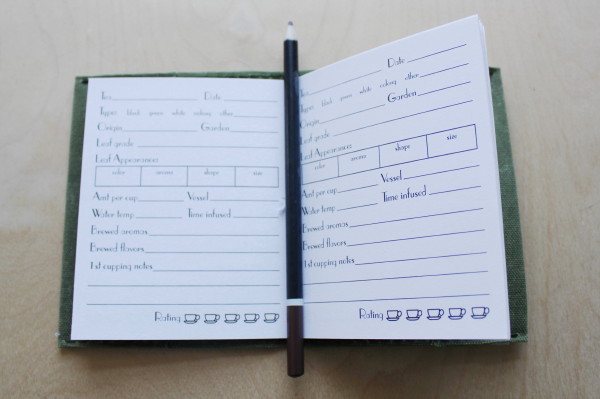 Tea Date
Type: black green white oolong other
Origin Garden
Leaf grade
Leaf Appearance:
color aroma shape size
Amt per cup Vessel
Water temp Time infused
Brewed aromas
Brewed flavors
1st cupping notes
Rating
Tea Date
Type: black green white oolong other
Origin Garden
Leaf grade
Leaf Appearance:
color aroma shape size
Amt per cup Vessel
Water temp Time infused
Brewed aromas
Brewed flavors
1st cupping notes
Rating